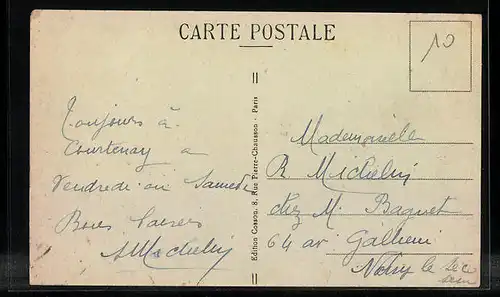 CARTE POSTALE
10
Toujours à
Courtenay a
Vendredi ou Samedi
Bons Baisers
A Michelin
Edition Cosson, 8, Rue Pierre-Chausson - Paris
Mademoiselle
R. Michelin
chez M. Baguet
64 av Gallieni
Noisy le Sec
Seine